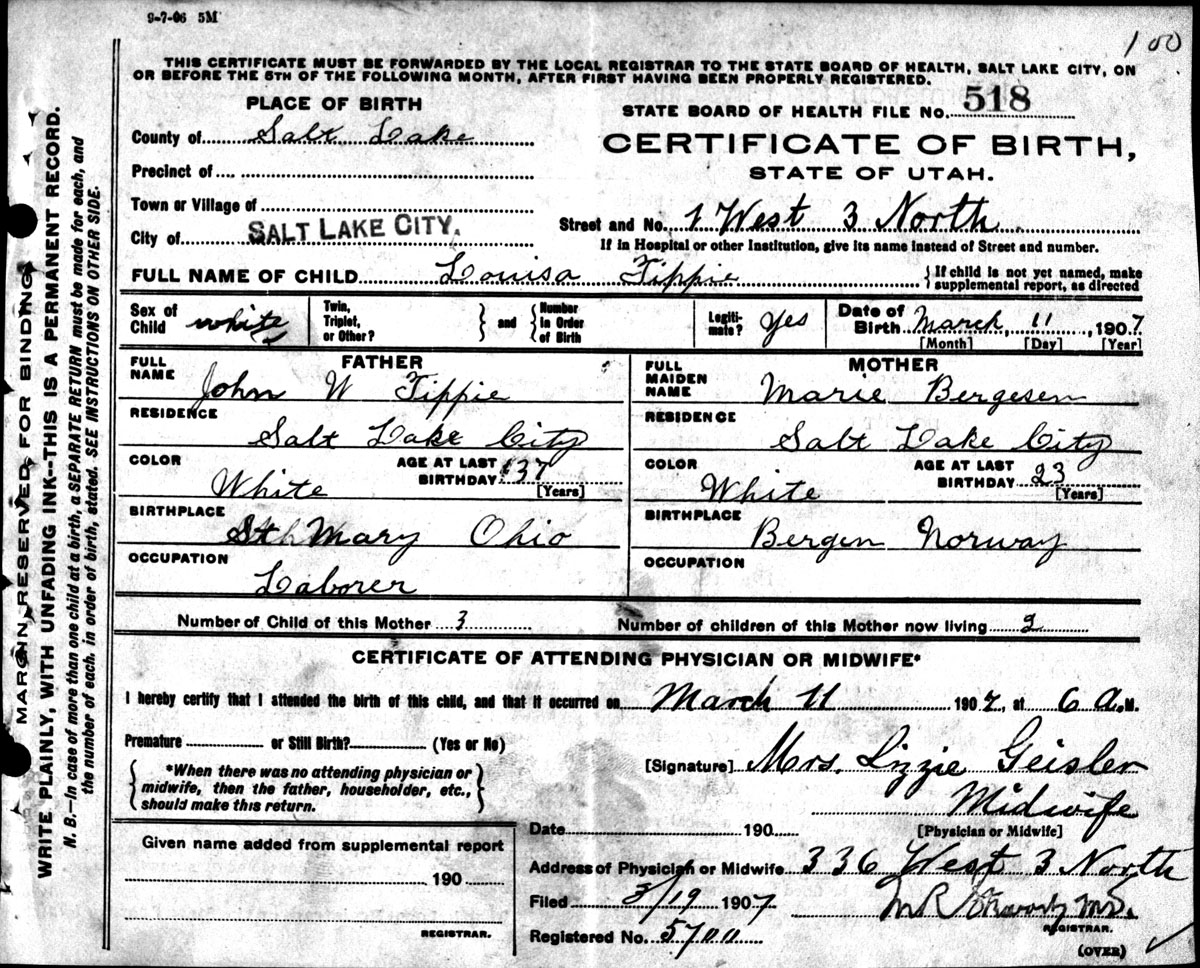 9-7-06 5M
100
THIS CERTIFICATE MUST BE FORWARDED BY THE LOCAL REGISTRAR TO THE STATE BOARD OF HEALTH, SALT LAKE CITY, ON
OR BEFORE THE 5TH OF THE FOLLOWING MONTH, AFTER FIRST HAVING BEEN PROPERLY REGISTERED.
PLACE OF BIRTH
STATE BOARD OF HEALTH FILE No. 518
County of Salt Lake
CERTIFICATE OF BIRTH,
Precinct of
STATE OF UTAH.
Town or Village of
Street and No. 1 West 3 North
City of SALT LAKE CITY.
If in Hospital or other Institution, give its name instead of Street and number.
FULL NAME OF CHILD Louisa Tippie
{ If child is not yet named, make
supplemental report, as directed
Sex of Child white
Twin, Triplet, or Other? } and { Number in Order of Birth
Legiti-mate? Yes
Date of Birth March 11, 1907
[Month] [Day] [Year]
FATHER
FULL NAME John W Tippie
RESIDENCE
Salt Lake City
COLOR White
AGE AT LAST BIRTHDAY 37
[Years]
BIRTHPLACE
Mary Ohio
OCCUPATION
Laborer
MOTHER
FULL MAIDEN NAME Marie Bergesen
RESIDENCE
Salt Lake City
COLOR White
AGE AT LAST BIRTHDAY 23
[Years]
BIRTHPLACE
Bergen Norway
OCCUPATION
Number of Child of this Mother 3
Number of children of this Mother now living 2
CERTIFICATE OF ATTENDING PHYSICIAN OR MIDWIFE*
I hereby certify that I attended the birth of this child, and that it occurred on March 11 1907, at 6 A.M.
Premature or Still Birth? (Yes or No)
{ *When there was no attending physician or
midwife, then the father, householder, etc.,
should make this return. }
[Signature] Mrs. Lizzie Geisler
Midwife
[Physician or Midwife]
Date 190
Given name added from supplemental report
190
REGISTRAR.
Address of Physician or Midwife 336 West 3 North
Filed 3/19 1907
REGISTRAR.
Registered No. 5700
(OVER)
MARGIN RESERVED FOR BINDING
WRITE PLAINLY, WITH UNFADING INK--THIS IS A PERMANENT RECORD.
N. B.—In case of more than one child at a birth, a SEPARATE RETURN must be made for each, and
the number of each, in order of birth, stated. SEE INSTRUCTIONS ON OTHER SIDE.